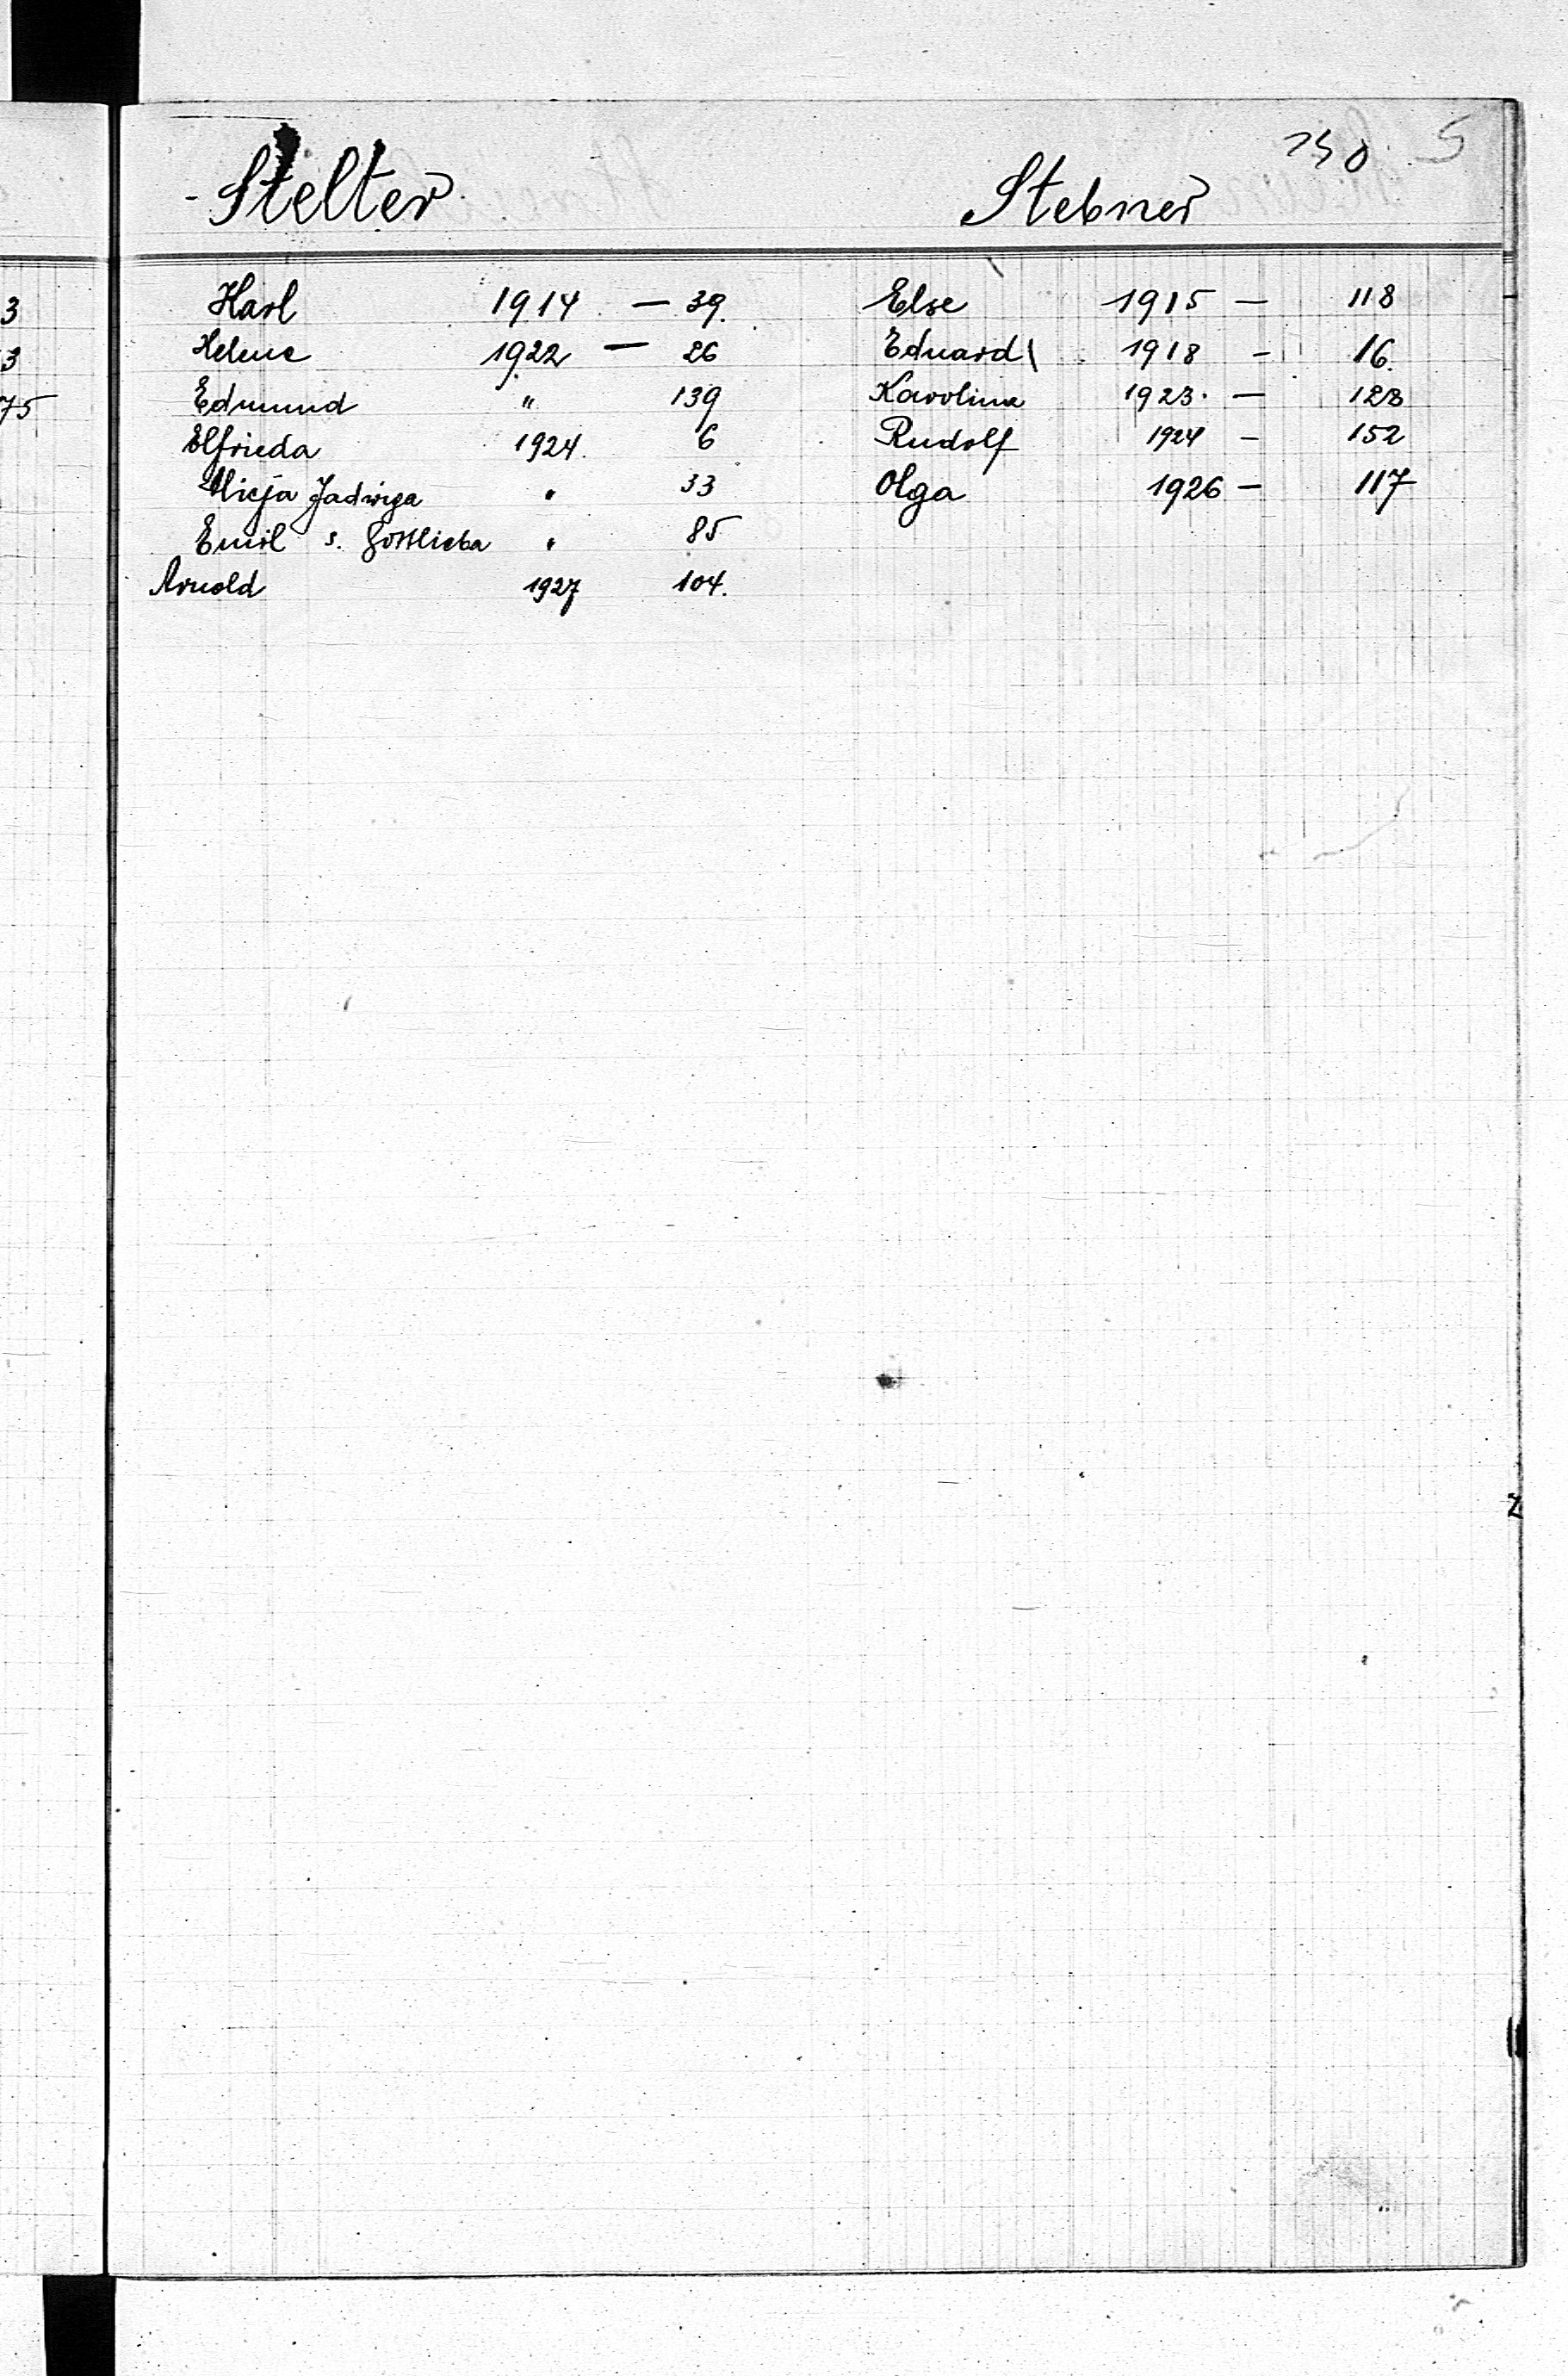 S
Stelter
Karl 1914 — 39.
Helene 1922 — 26
Edmund " 139
Elfrieda 1924. 6
Alicja Jadwiga " 33
Emil s. Gottlieba " 85
Arnold 1927 104.
Stebner
Else 1915 — 118
Eduard 1918 — 16.
Karolina 1923. — 123
Rudolf 1924 — 152
Olga 1926 — 117
3
3
75